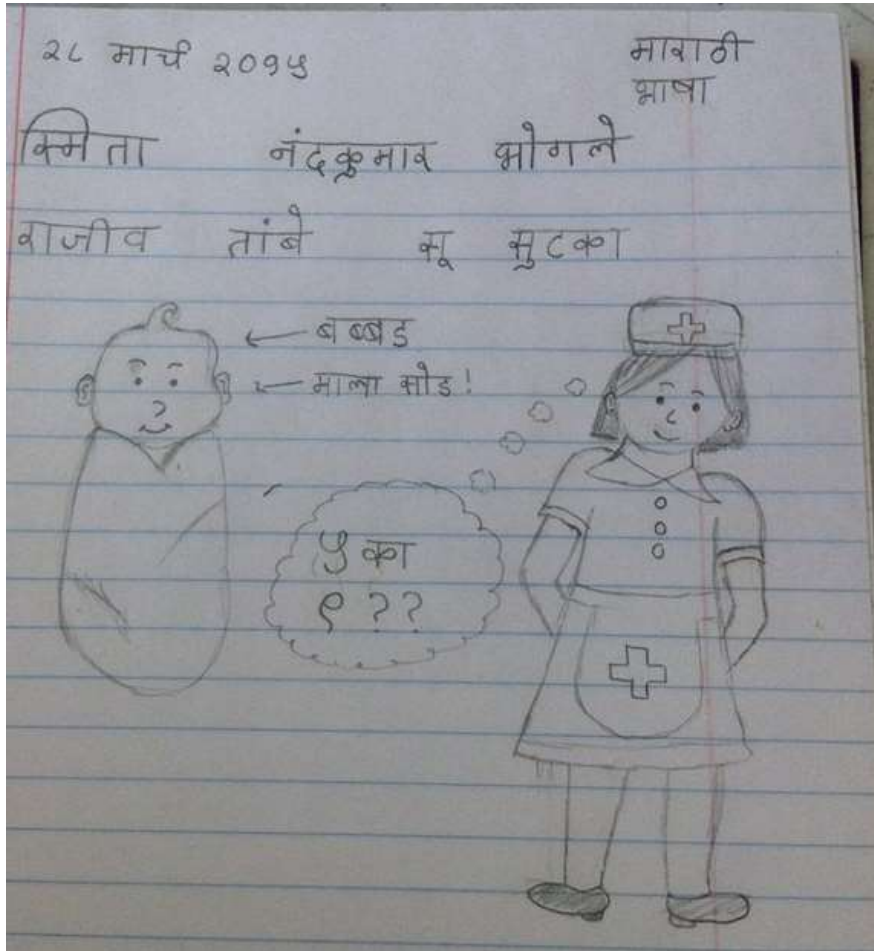 २८ मार्च २०१५
माराठी
भाषा
स्मिता नंदकुमार भोगले
राजीव तांबे सू सुटका
बब्बड
माला सोड!
५ का
९??